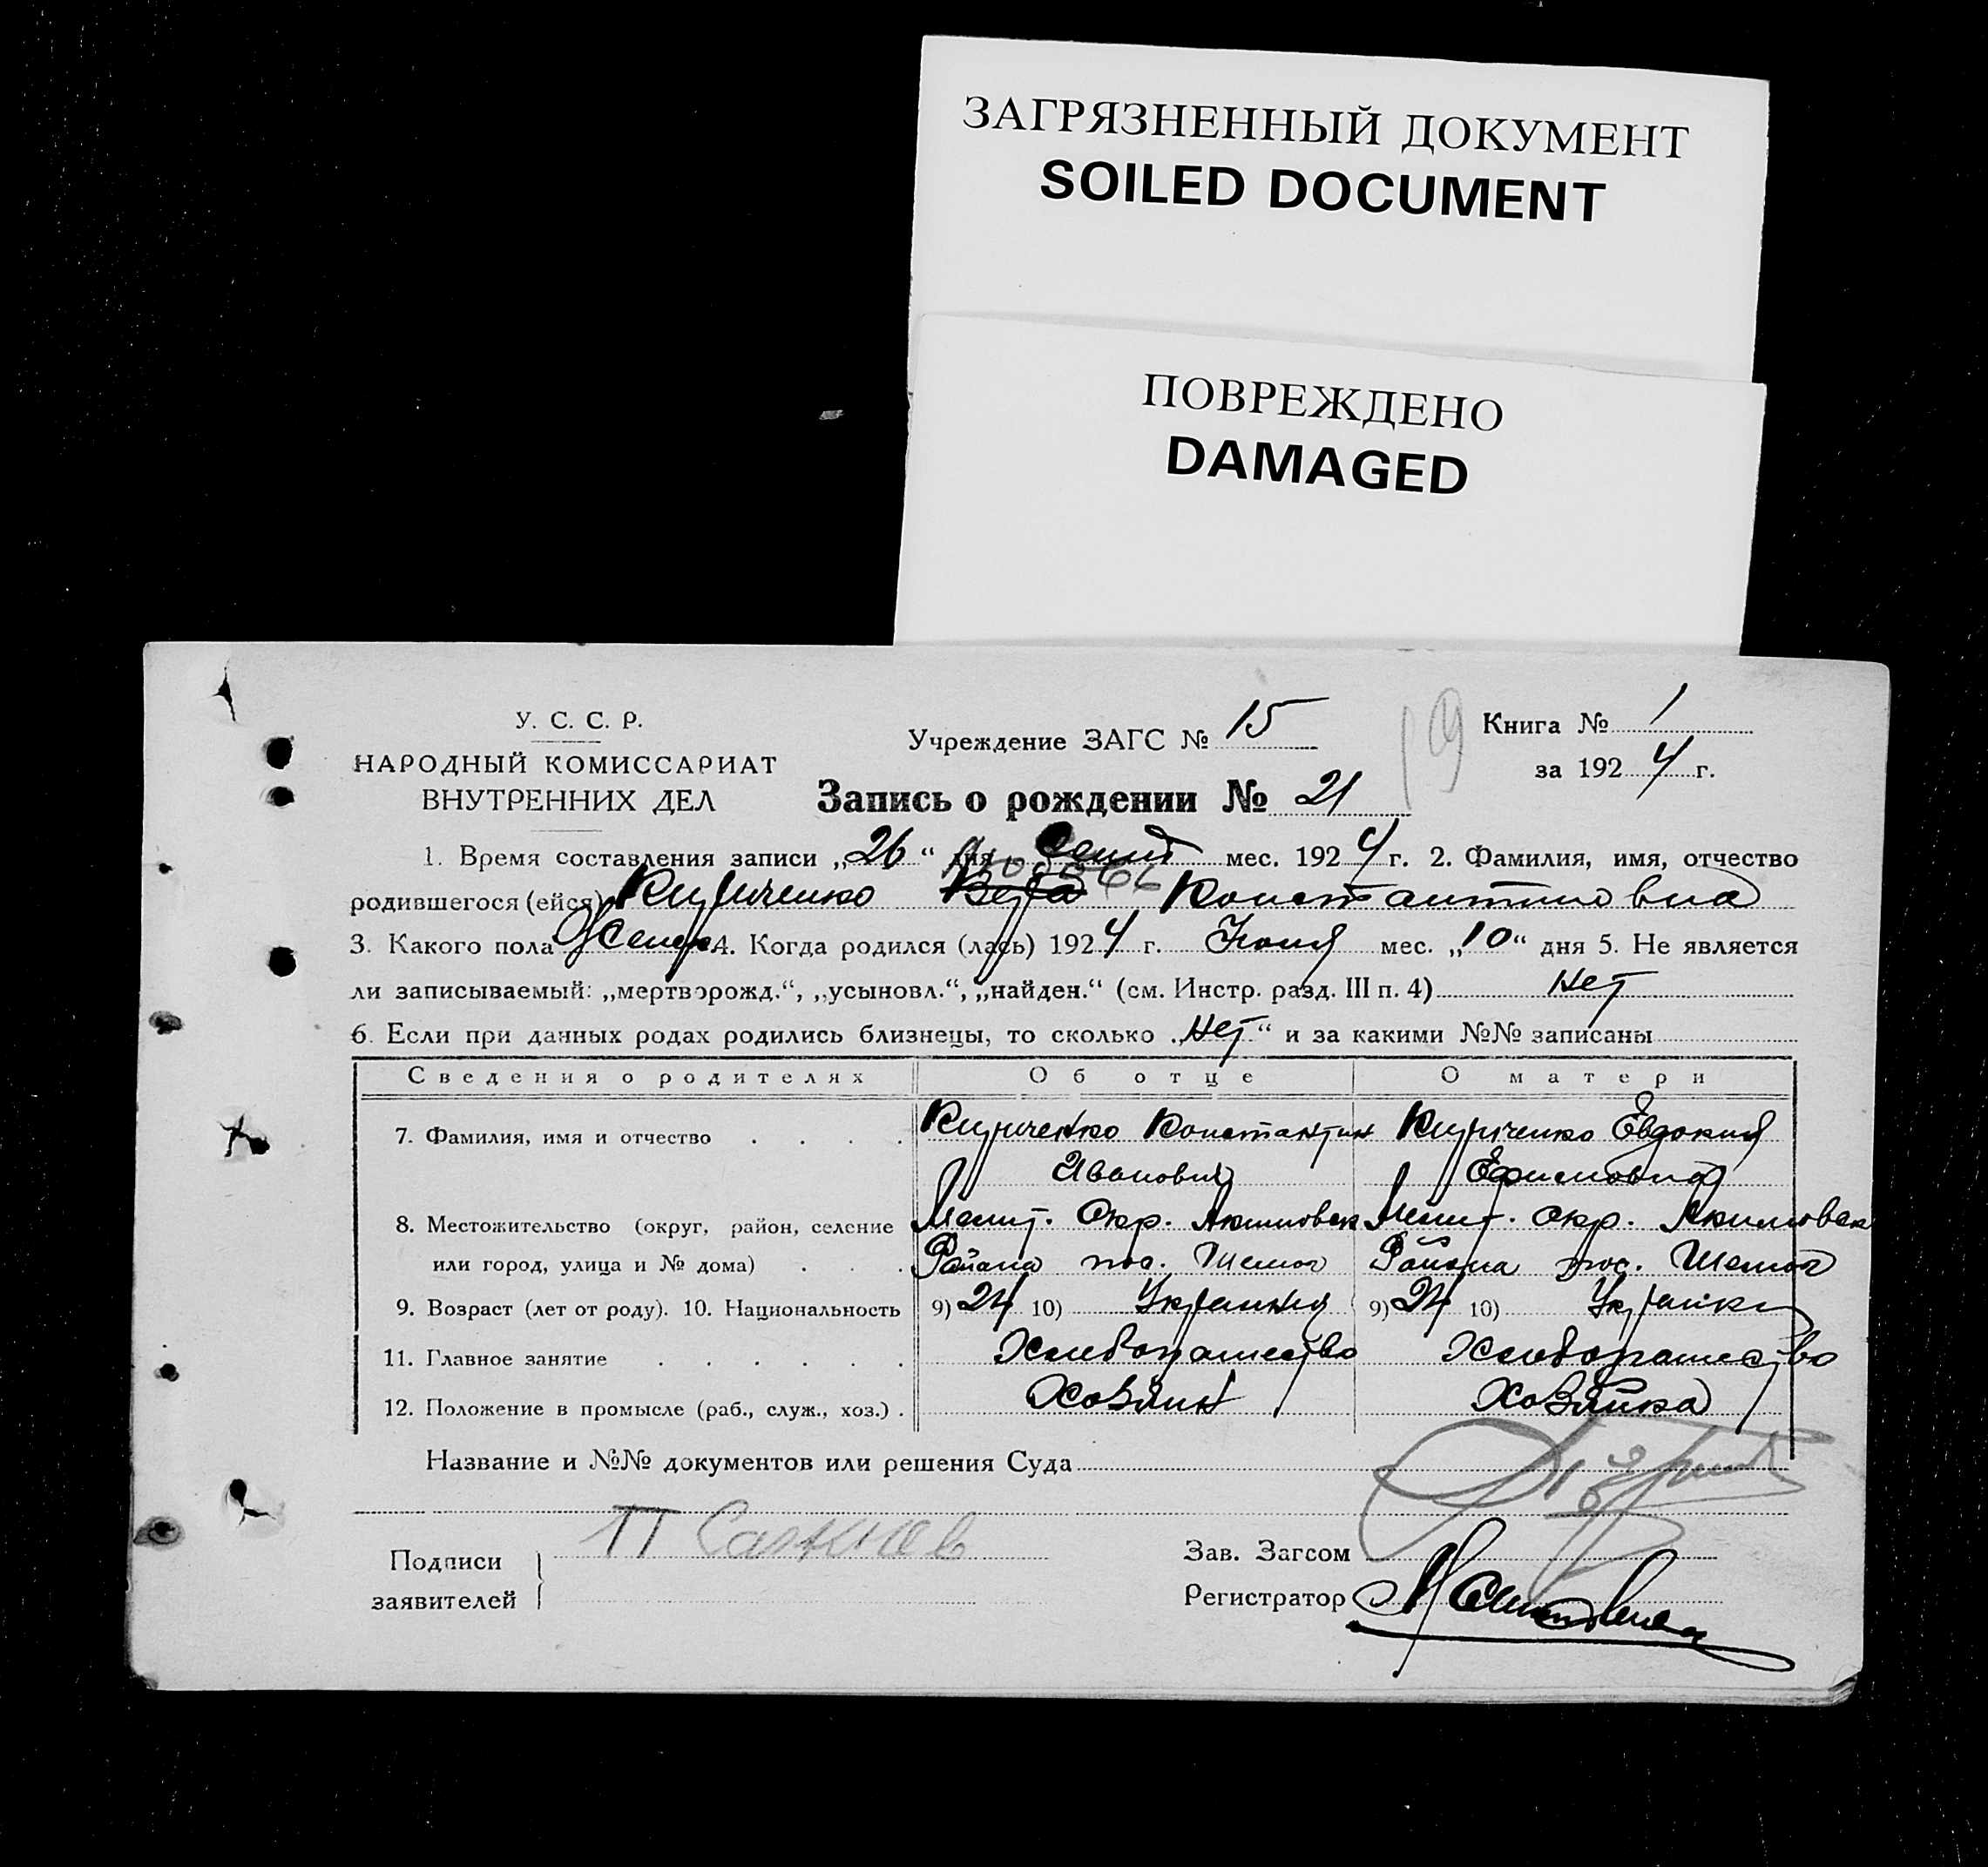 ЗАГРЯЗНЕННЫЙ ДОКУМЕНТ
SOILED DOCUMENT
ПОВРЕЖДЕНО
DAMAGED
У. С. С. Р.
НАРОДНЫЙ КОМИССАРИАТ
ВНУТРЕННИХ ДЕЛ
Учреждение ЗАГС № 15
19
Книга № 1
за 1924 г.
Запись о рождении № 21
1. Время составления записи „26“ дня Сент мес. 1924 г. 2. Фамилия, имя, отчество
Любовь
родившегося (ейся) Кириченко Вера Константиновна
3. Какого пола Женск 4. Когда родился (лась) 1924 г. Июня мес. „10“ дня 5. Не является
ли записываемый: „мертворожд.“, „усыновл.“, „найден.“ (см. Инстр. разд. III п. 4) Нет
6. Если при данных родах родились близнецы, то сколько „Нет“ и за какими №№ записаны
Сведения о родителях Об отце О матери
7. Фамилия, имя и отчество . . . . Кириченко Константин Кириченко Евдокия
Иванович Ефимовна
8. Местожительство (округ, район, селение Мелит. Окр. Акимовск Мелит. Окр. Акимовск
или город, улица и № дома) . . . Района пос. Района пос.
9. Возраст (лет от роду). 10. Национальность 9) 24 10) 9) 24 10)
11. Главное занятие . . . . . . Хлебопашество Хлебопашество
12. Положение в промысле (раб., служ., хоз.) . Хозяин Хозяйка
Название и №№ документов или решения Суда
Подписи
заявителей
П
Зав. Загсом
Регистратор